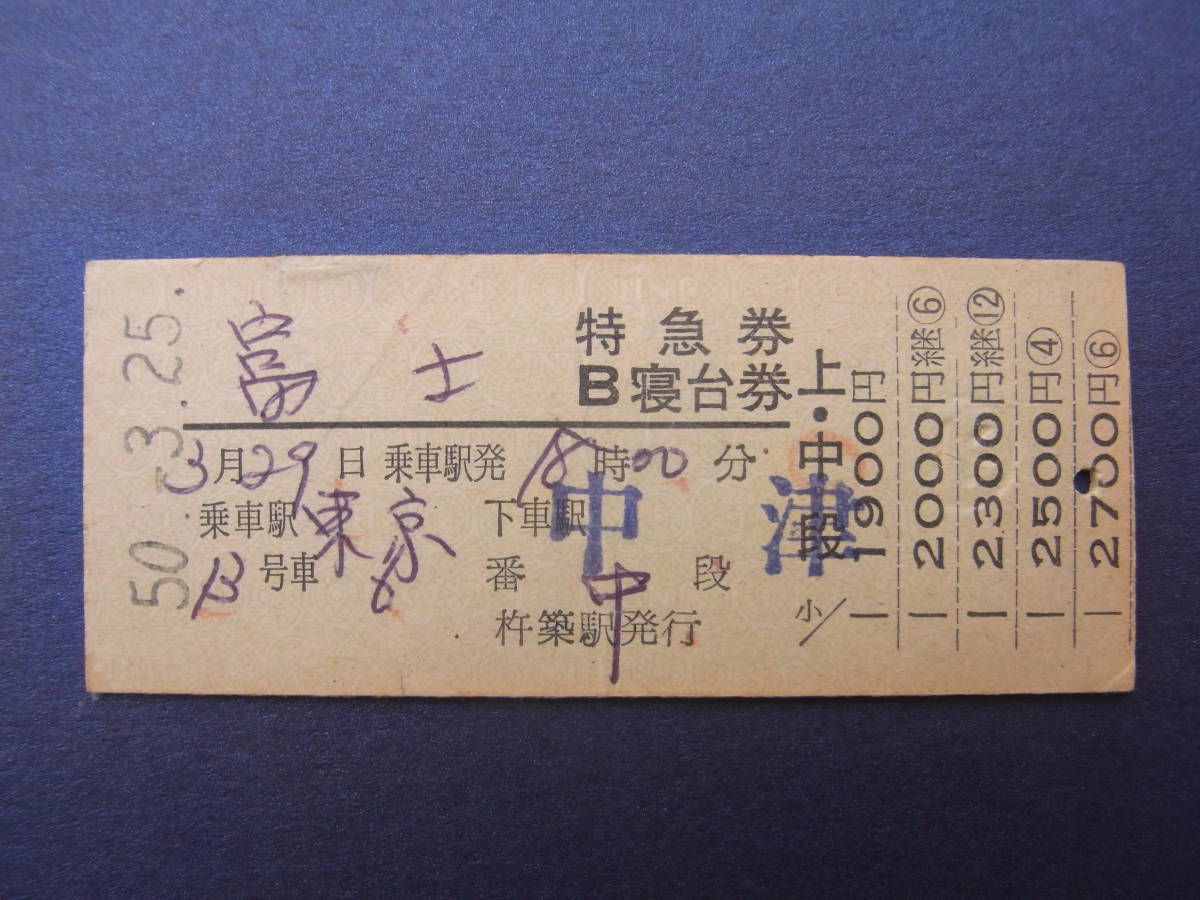 50.-3.25.
富士
特急券
B寝台券
上・中段
3月29日 乗車駅発 18時00分
乗車駅 東京 下車駅 中津
13号車 6番 中段
杵築駅発行
小/
1900円
2000円継⑥
2300円継⑫
2500円④
2700円⑥